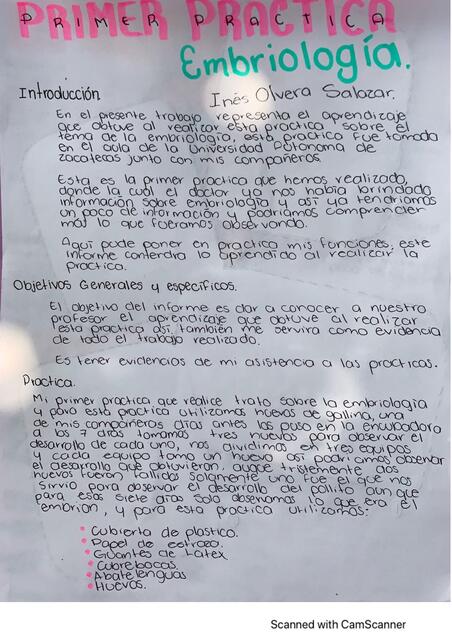 PRIMER PRACTICA
Embriología.
Introducción
Inés Olvera Salazar.
En el presente trabajo representa el aprendizaje
que obtuve al realizar esta practica sobre el
tema de la embriología, esta practica fue tomada
en el aula de la Universidad Autonoma de
zacatecas junto con mis compañeros.
Esta es la primer practica que hemos realizado,
donde la cual el doctor ya nos había brindado
información sobre embriología y así ya tendríamos
un poco de información y podriamos comprender
mas lo que fueramos observando.
Aquí pude poner en practica mis funciones, este
informe contendra lo aprendido al realizar la
practica.
Objetivos Generales y especificos.
El objetivo del informe es dar a conocer a nuestro
profesor el aprendizaje que obtuve al realizar
esta practica así también me servira como evidencia
de todo el trabajo realizado.
Es tener evidencias de mi asistencia a las practicas.
Practica.
Mi primer practica que realice trato sobre la embriología
y para esta practica utilizamos huevos de gallina, una
de mis compañeras días antes los puso en la encubadora
a los 7 días tomamos tres huevos para observar el
desarrollo de cada uno, nos dividimos en tres equipos
y cada equipo tomo un huevo así podríamos observar
el desarrollo que obtuvieron, auque tristemente dos
huevos fueron fallidos solamente uno fue el que nos
sirvio para observar el desarrollo del pollito aun que
para esos siete días solo observamos lo que era el
embrion, y para esta practica utilizamos:
• Cubierta de plastico.
• Papel de estrazo.
• Guantes de Latex
• Cubrebocas.
• Abatelenguas
• Huevos.
Scanned with CamScanner